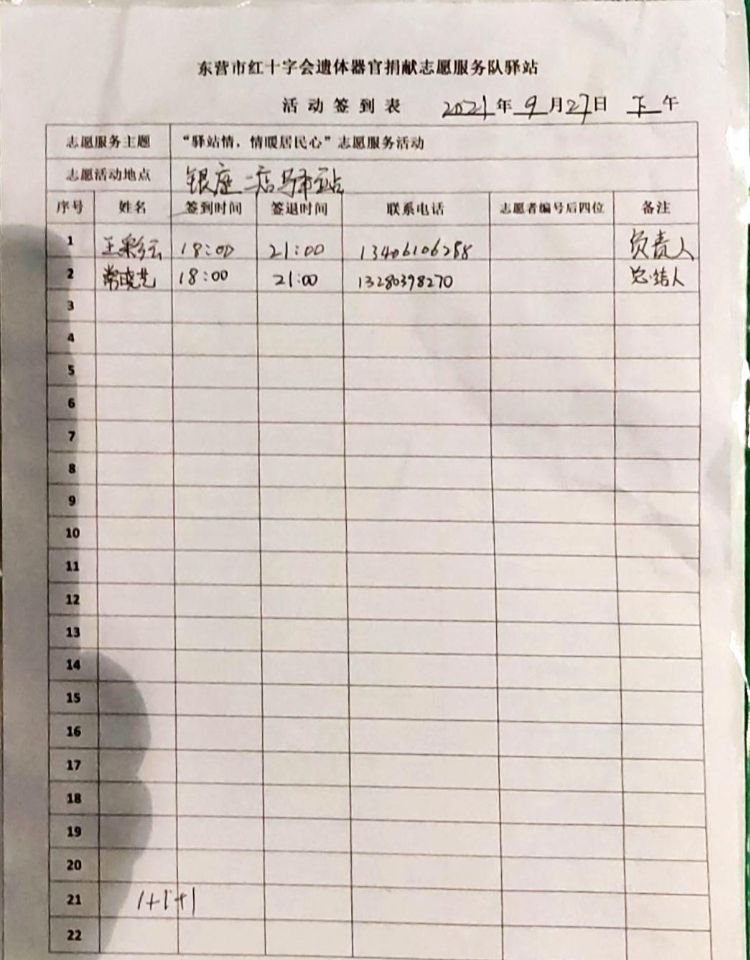 东营市红十字会遗体器官捐献志愿服务队驿站
活动签到表 2021年9月27日 下午
志愿服务主题 “驿站情，情暖居民心”志愿服务活动
志愿活动地点 银座二店驿站
序号 姓名 签到时间 签退时间 联系电话 志愿者编号后四位 备注
1 王彩云 18:00 21:00 13406106288 负责人
2 常晓艺 18:00 21:00 13280398270 总结人
3
4
5
6
7
8
9
10
11
12
13
14
15
16
17
18
19
20
21 1+1+1
22